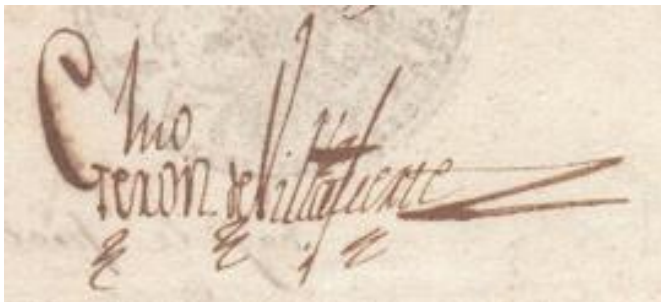 Geron de Villafuerte